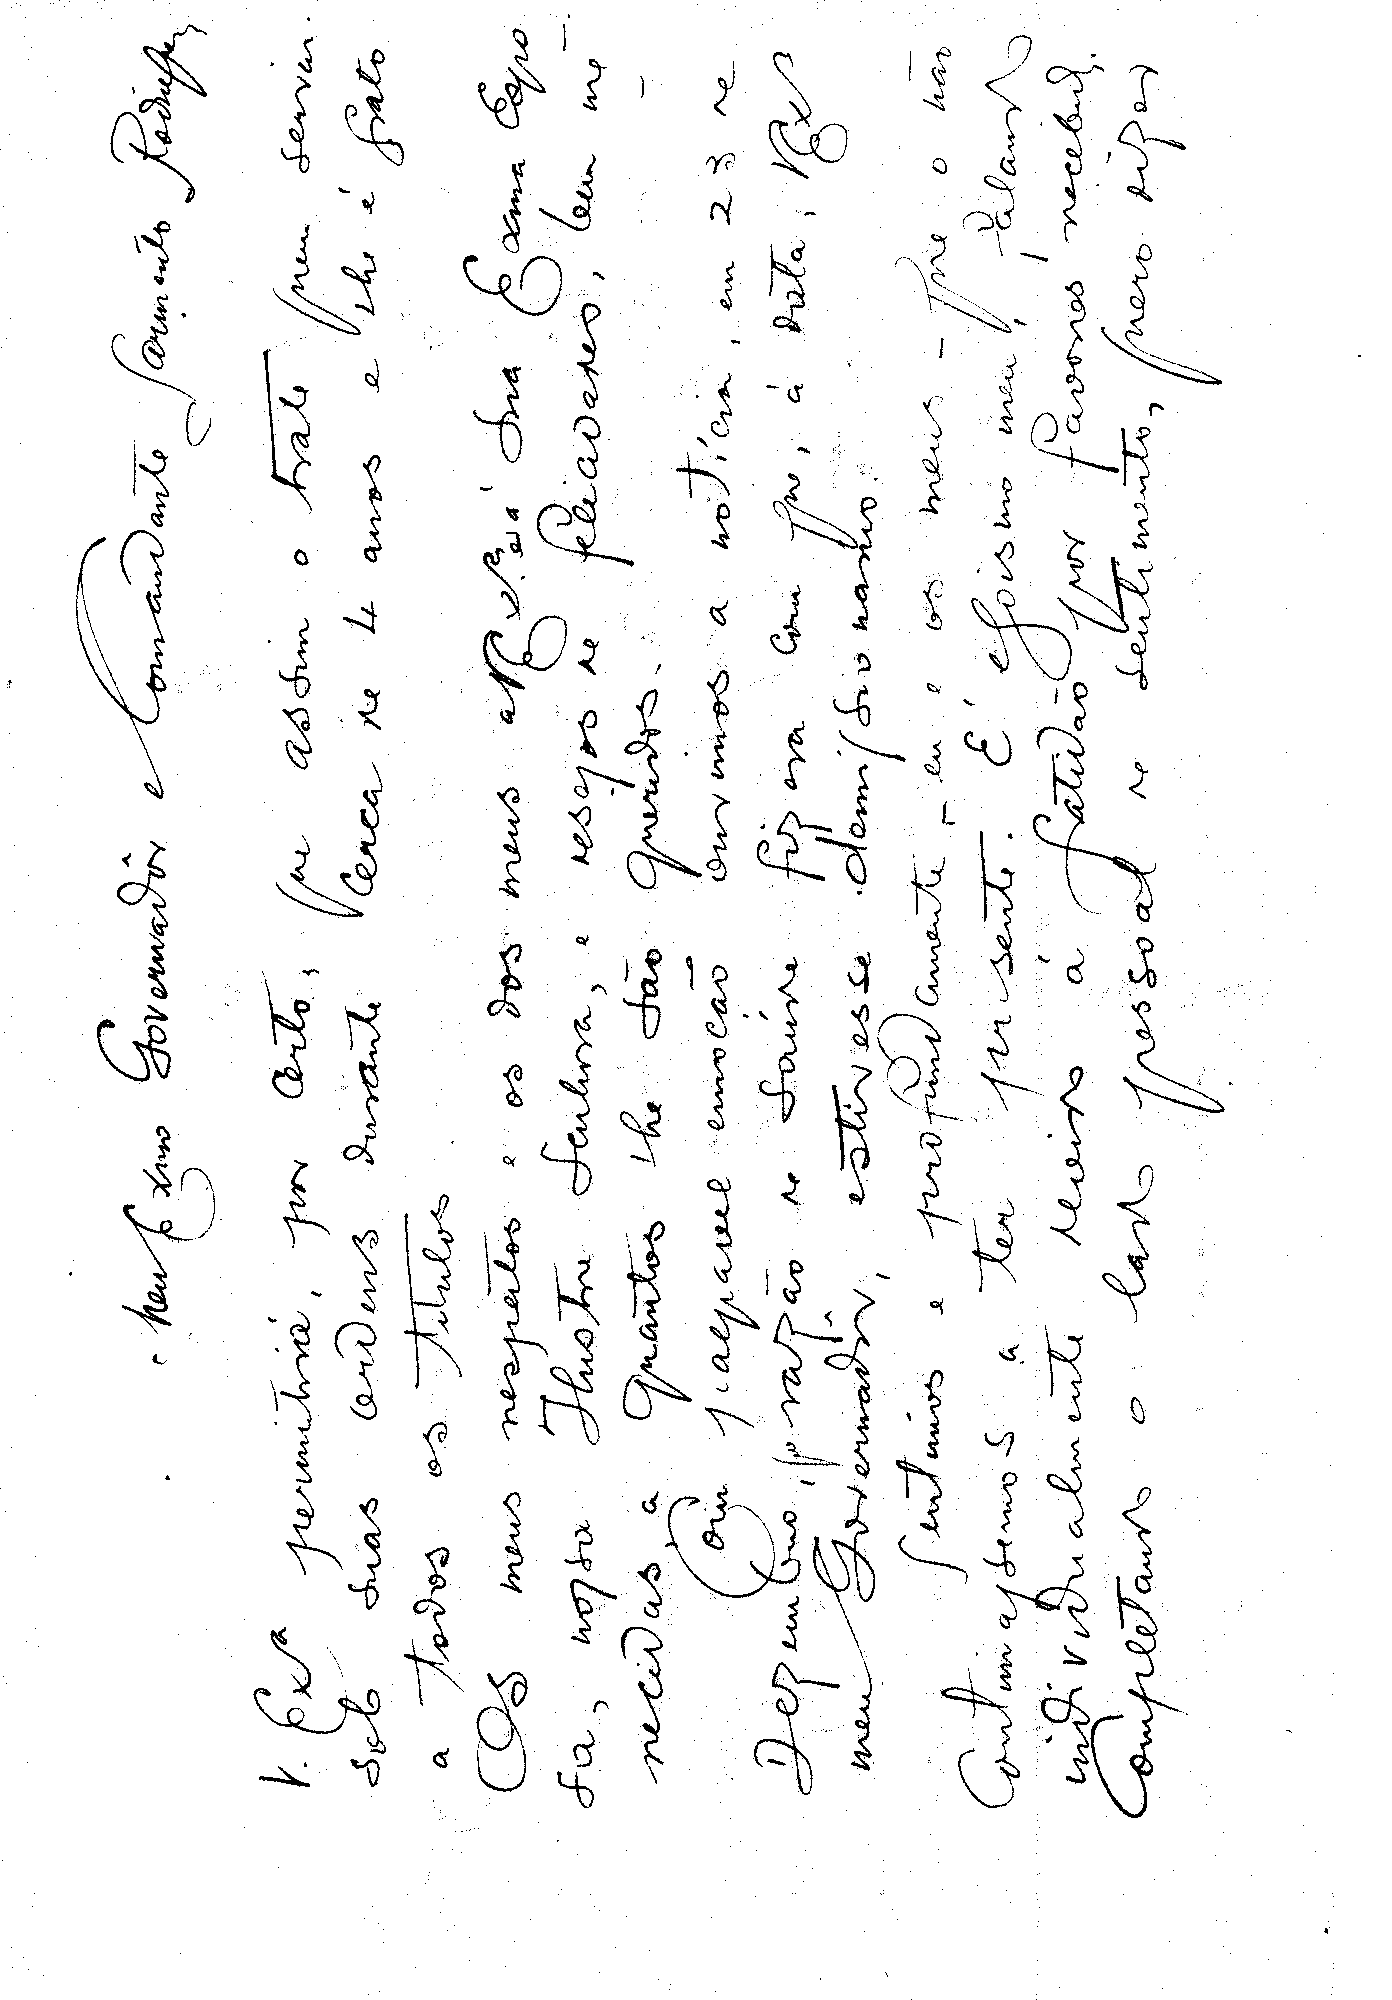 Meu Exmo Governadôr e Comandante Sarmento Rodrigues,
V. Exª permitirá, por certo, que assim o trate quem serviu
sob suas ordens durante cerca de 4 anos e lhe é grato
a todos os títulos
Os meus respeitos e os dos meus a V. Exª e á Sua Exma Espo
sa, nossa Ilustre Senhora, e desejos de felicidades, bem me-
recidas, a quantos lhe são queridos. -
Com palpavel emoção ouvimos a notícia, em 23 de
Dezembro, por razão de saúde fizera com que, á data, V. Exª
meu Governadôr, estivesse demissionario.
Sentimos e profundamente - eu e os meus - que o não
continuassemos a ter presente. É egoismo meu, falando
individualmente devido á gratidão por favores recebidos.
Completando o lado pessoal do sentimento, quero dizer